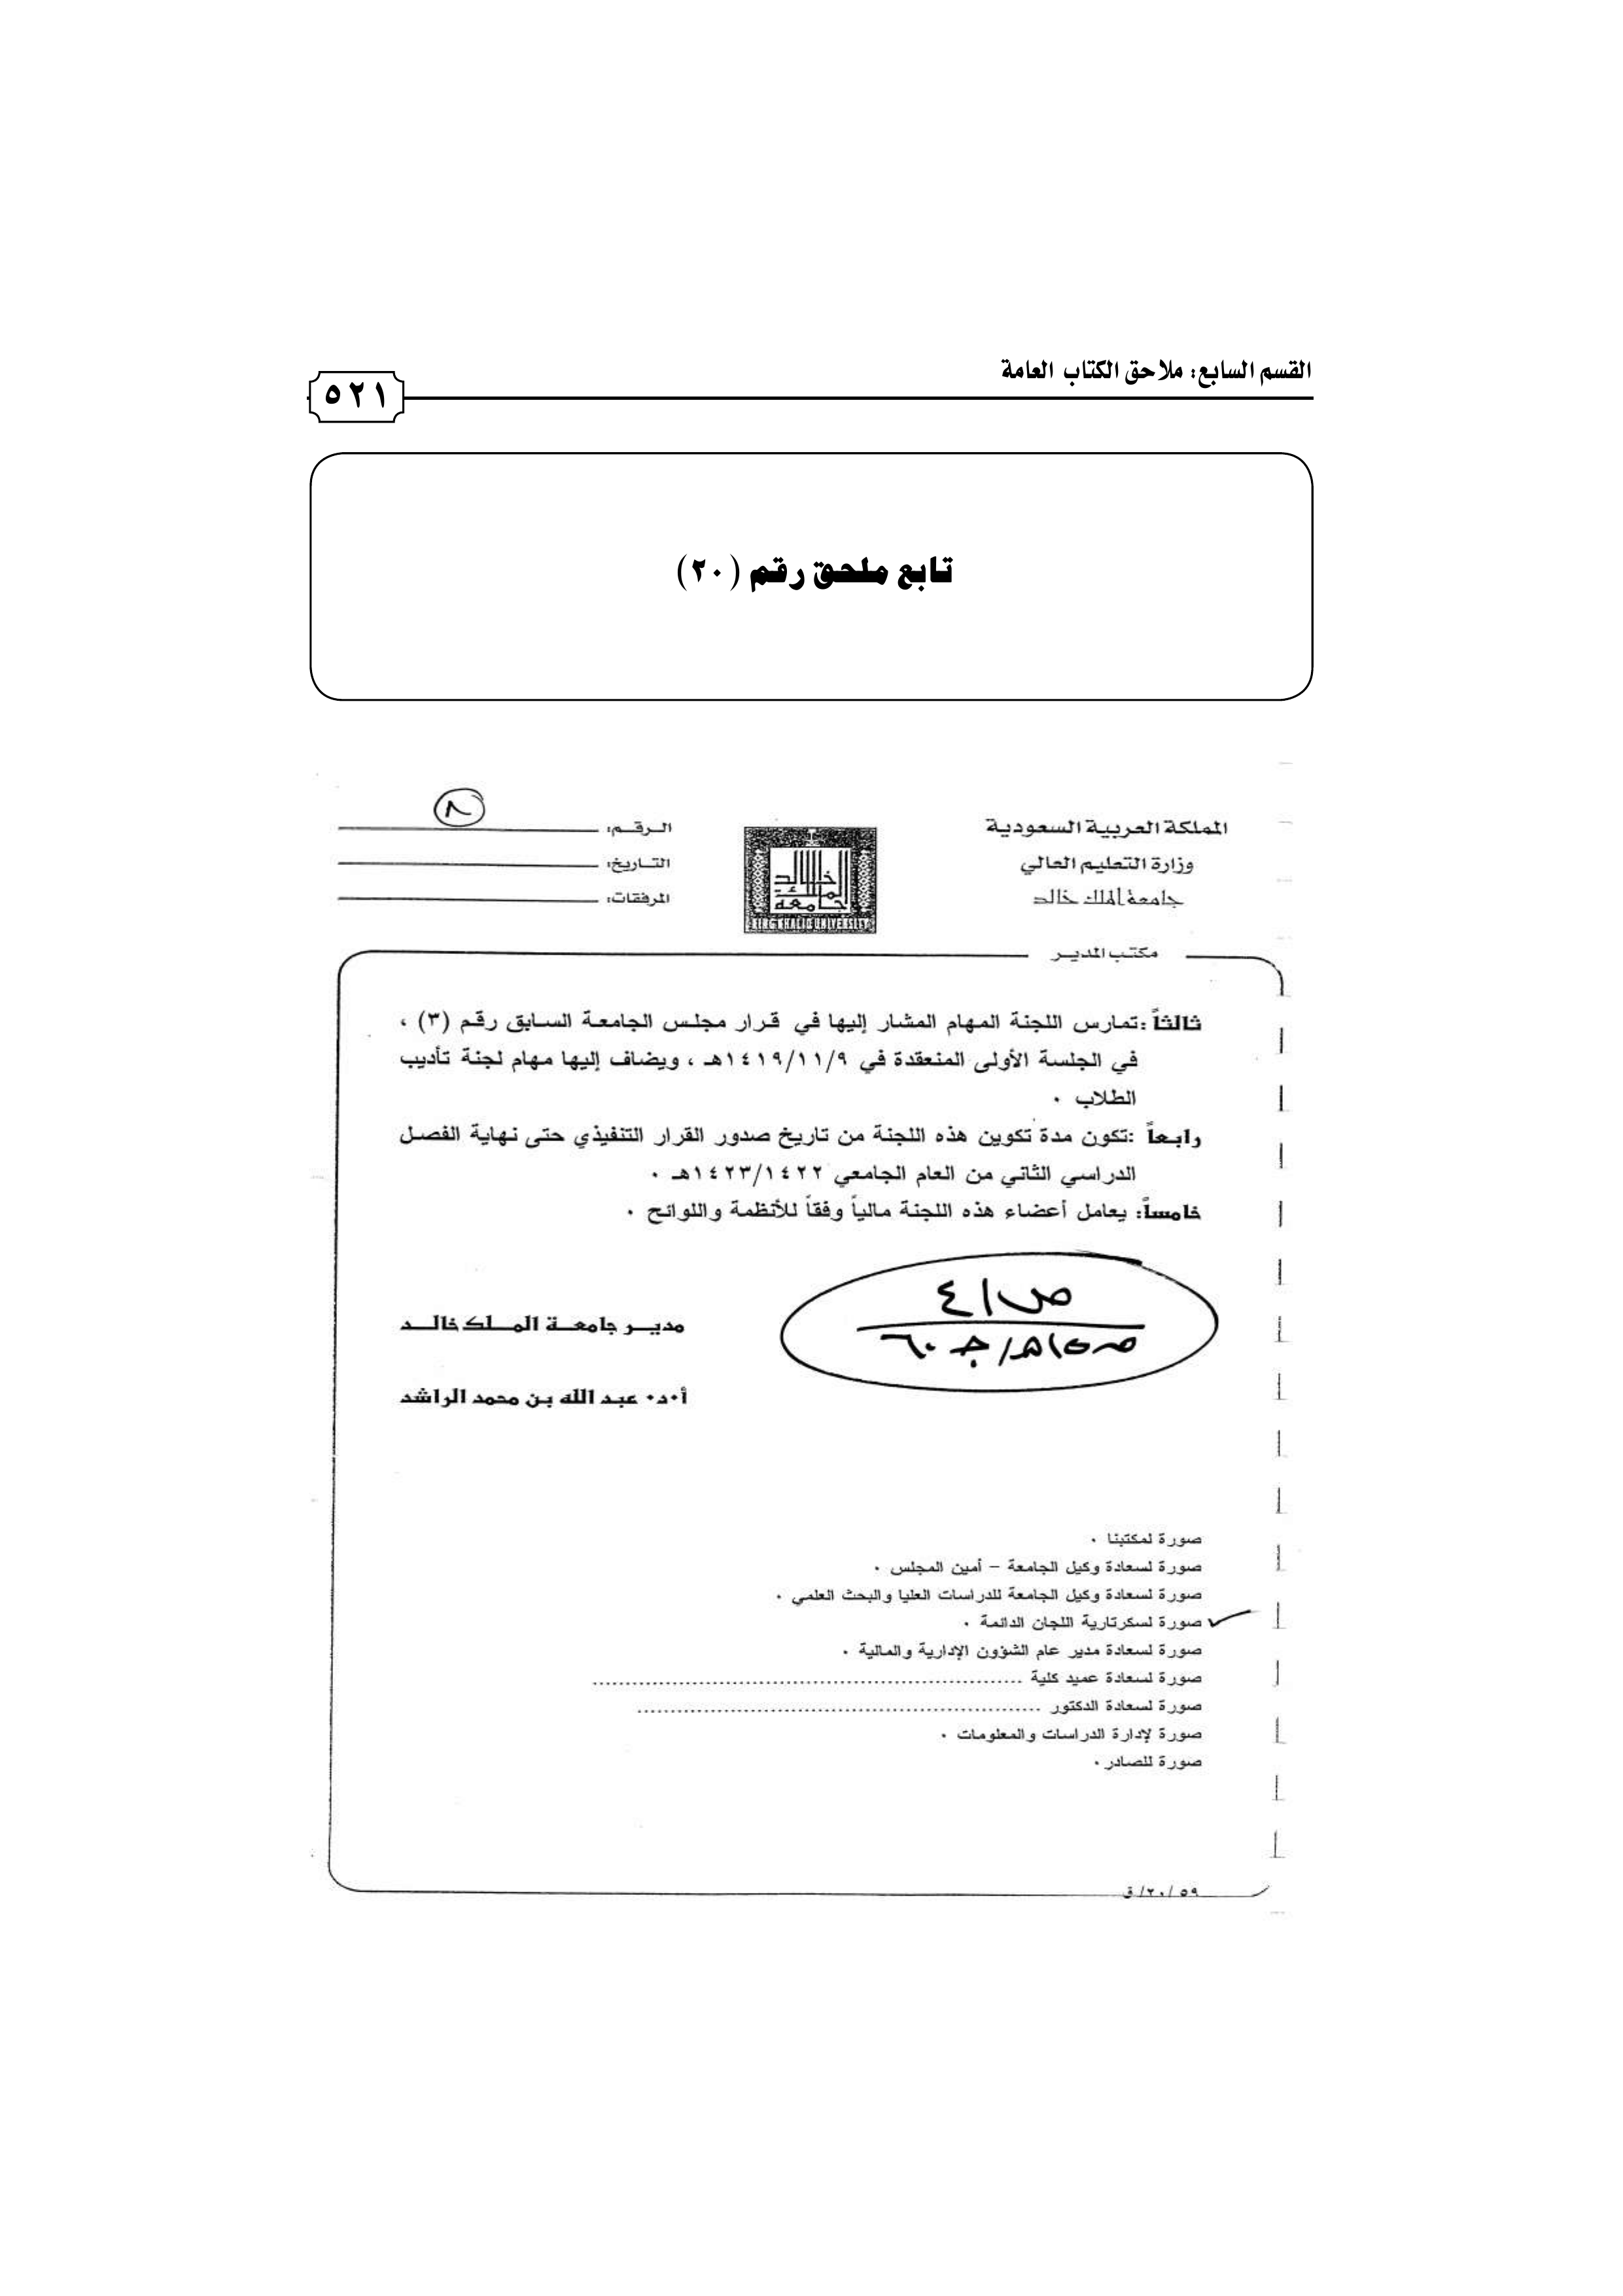 القسم السابع: ملاحق الكتاب العامة
٥٢١
تابع ملحق رقم (٢٠)
المملكة العربية السعودية
وزارة التعليم العالي
جامعة الملك خالد
الملك خالد
جامعة
KING KHALID UNIVERSITY
الرقم:
٨
التاريخ:
المرفقات:
مكتب المدير
ثالثاً: تمارس اللجنة المهام المشار إليها في قرار مجلس الجامعة السابق رقم (٣) ،
في الجلسة الأولى المنعقدة في ١٤١٩/١١/٩هـ ، ويضاف إليها مهام لجنة تأديب
الطلاب ٠
رابعاً: تكون مدة تكوين هذه اللجنة من تاريخ صدور القرار التنفيذي حتى نهاية الفصل
الدراسي الثاني من العام الجامعي ١٤٢٣/١٤٢٢هـ ٠
خامساً: يعامل أعضاء هذه اللجنة مالياً وفقاً للأنظمة واللوائح ٠
ص/٤
مدير جامعة الملك خالد
أ٠د٠ عبد الله بن محمد الراشد
صورة لمكتبنا ٠
صورة لسعادة وكيل الجامعة – أمين المجلس ٠
صورة لسعادة وكيل الجامعة للدراسات العليا والبحث العلمي ٠
صورة لسكرتارية اللجان الدائمة ٠
صورة لسعادة مدير عام الشؤون الإدارية والمالية ٠
صورة لسعادة عميد كلية ..........................................................
صورة لسعادة الدكتور ..........................................................
صورة لإدارة الدراسات والمعلومات ٠
صورة للصادر ٠
٥٩/٢٠/ق